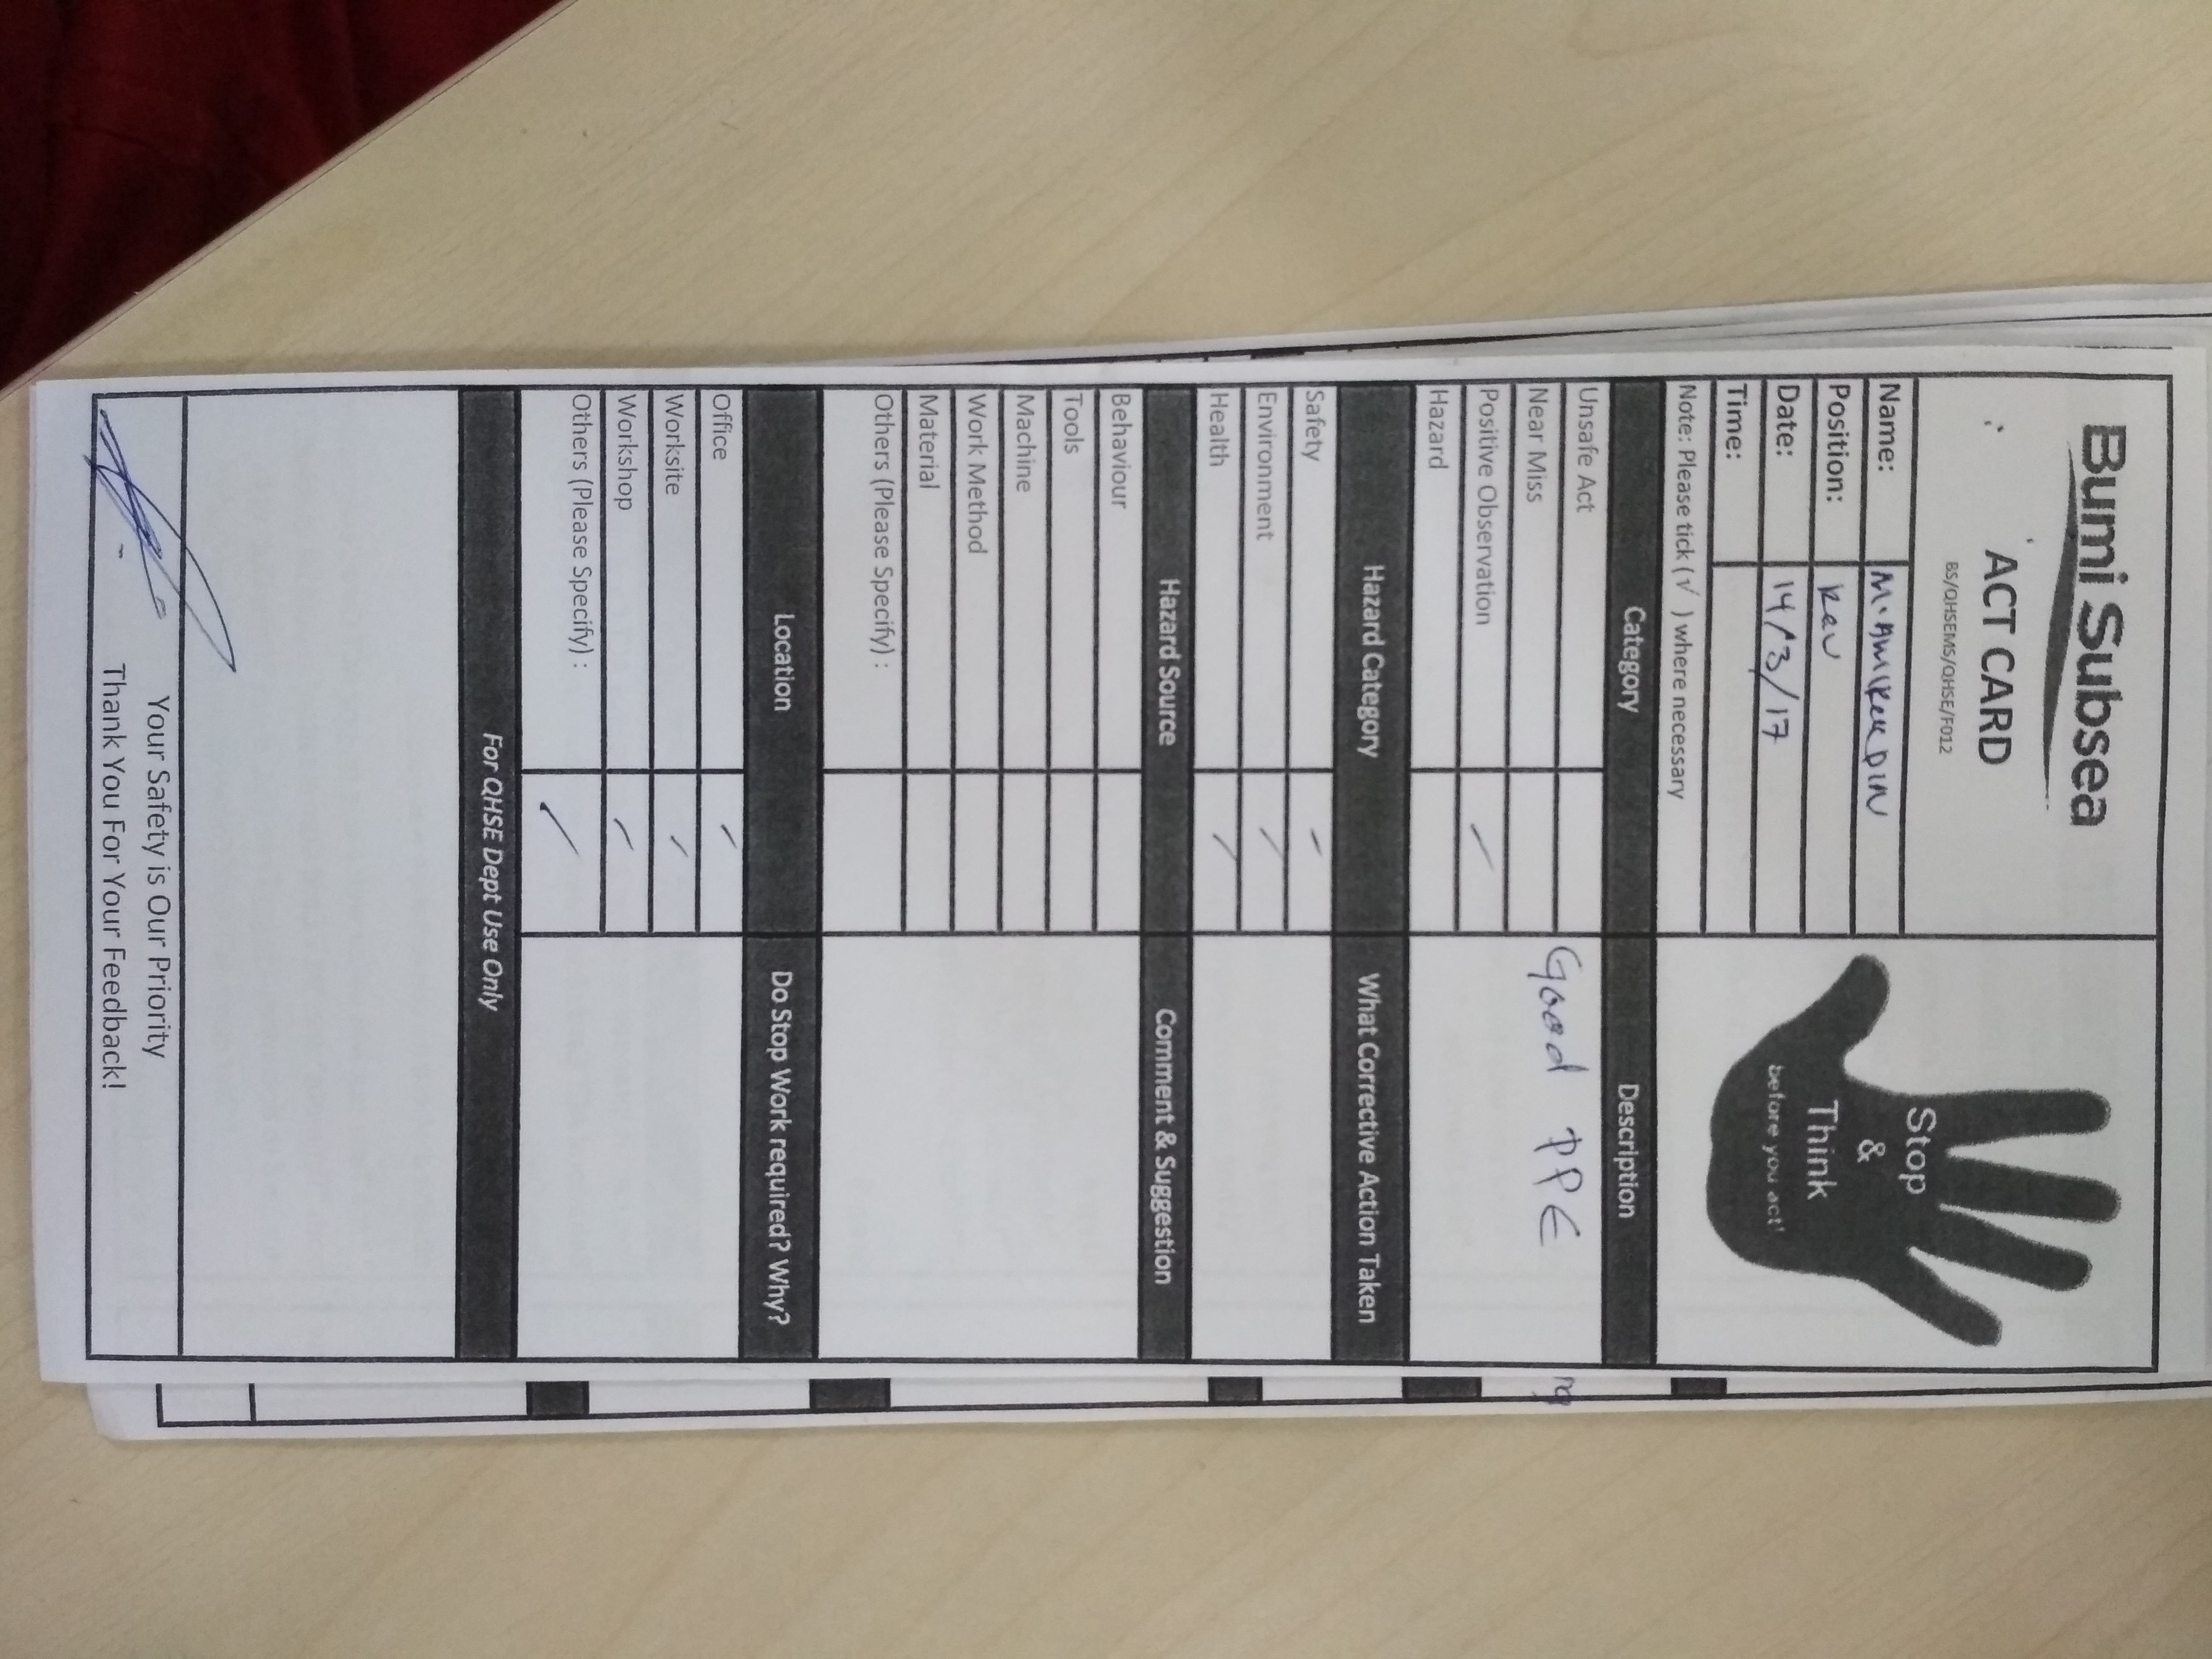 Bumi Subsea
ACT CARD
BS/QHSEMS/QHSE/F012
Stop
&
Think
before you act!
Name:
Position:
Date: 14/3/17
Time:
Note: Please tick (√ ) where necessary
Category Description
Unsafe Act Good PPE
Near Miss
Positive Observation
Hazard
Hazard Category What Corrective Action Taken
Safety
Environment
Health
Hazard Source Comment & Suggestion
Behaviour
Tools
Machine
Work Method
Material
Others (Please Specify) :
Location Do Stop Work required? Why?
Office
Worksite
Workshop
Others (Please Specify) :
For QHSE Dept Use Only
Your Safety is Our Priority
Thank You For Your Feedback!